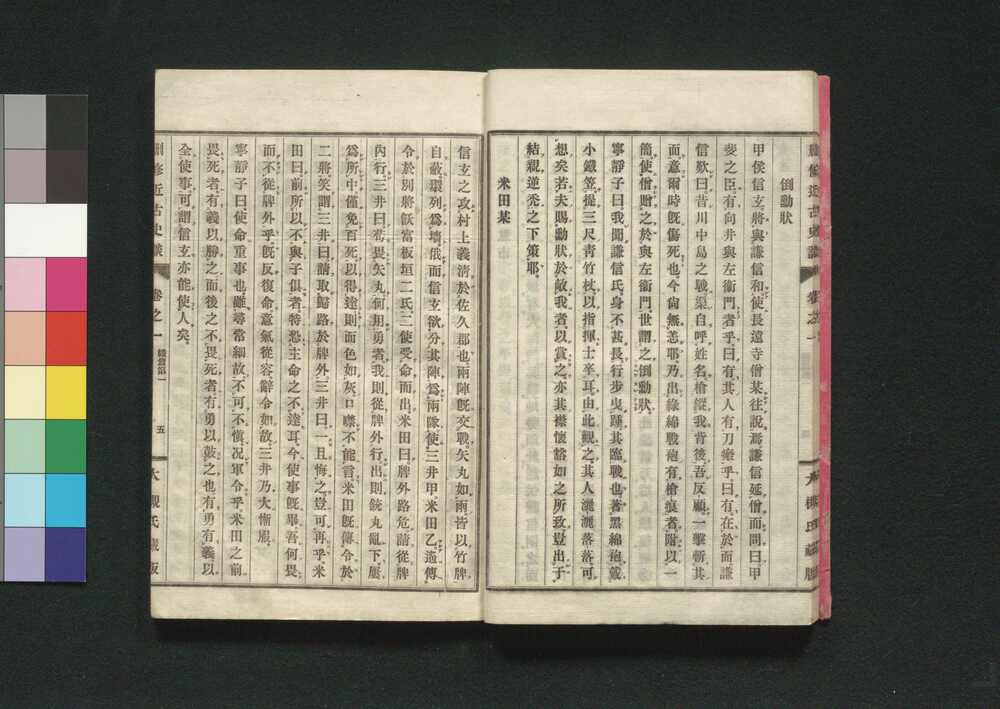 倒勳狀
甲侯信玄將與謙信和使長遠寺僧某往說焉謙信延僧而問曰甲
斐之臣有向井與左衞門者乎曰有其人有刀瘢乎曰有在於面謙
信歎曰昔川中島之戰渠自呼姓名槍縱我背後吾反顧一擊斬其
面意爾時旣傷死也今尙無恙耶乃出綠綿戰砲有槍痕者附以一
簡使僧貽之於與左衞門世謂之倒勳狀
寧靜子曰我聞謙信氏身不甚長行步曳踵其臨戰也著黑綿砲戴
小鐵笠提三尺靑竹杖以指揮士卒耳由此觀之其人灑灑落落可
想矣若夫賜勳狀於敵我者以賞之亦其襟懷豁如之所致豈出于
結親逆禿之下策耶
米田某
信玄之攻村上義淸於佐久郡也兩陣旣交戰矢丸如雨皆以竹牌
自蔽環列爲墻俄而信玄欲分其陣爲兩隊使三井甲米田乙造傳
令於別將飫富板垣二氏二使受命而出米田曰牌外路危請從牌
內行三井曰恐畏矢丸何用勇者我則從牌外行出則銃丸亂下屢
爲所中僅免百死以得達則面色如灰口噤不能言米田旣傳令於
二將笑謂三井曰請取歸路於牌外三井曰一且悔之豈可再乎米
田曰前所以不與子俱者特恐主命之不達耳今使事旣畢吾何畏
而不從牌外乎旣反復命意氣從容辭令如故三井乃大慚服
寧靜子曰使命重事也雖尋常細故不可不愼况軍令乎米田之前
畏死者有義以勝之而後之不畏死者有勇以鼓之也有勇有義以
全使事可謂信玄亦能使人矣
刪修近古史談
卷之一
五
大槻氏藏版